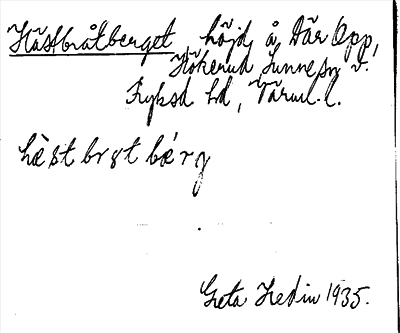 Hästbråtberget höjd å Där Opp,
Hökerud Sunnesn v.
Fryksd hd, Värml. l.
hæ̀st brɤt bǽrg
Greta Hedin 1935.